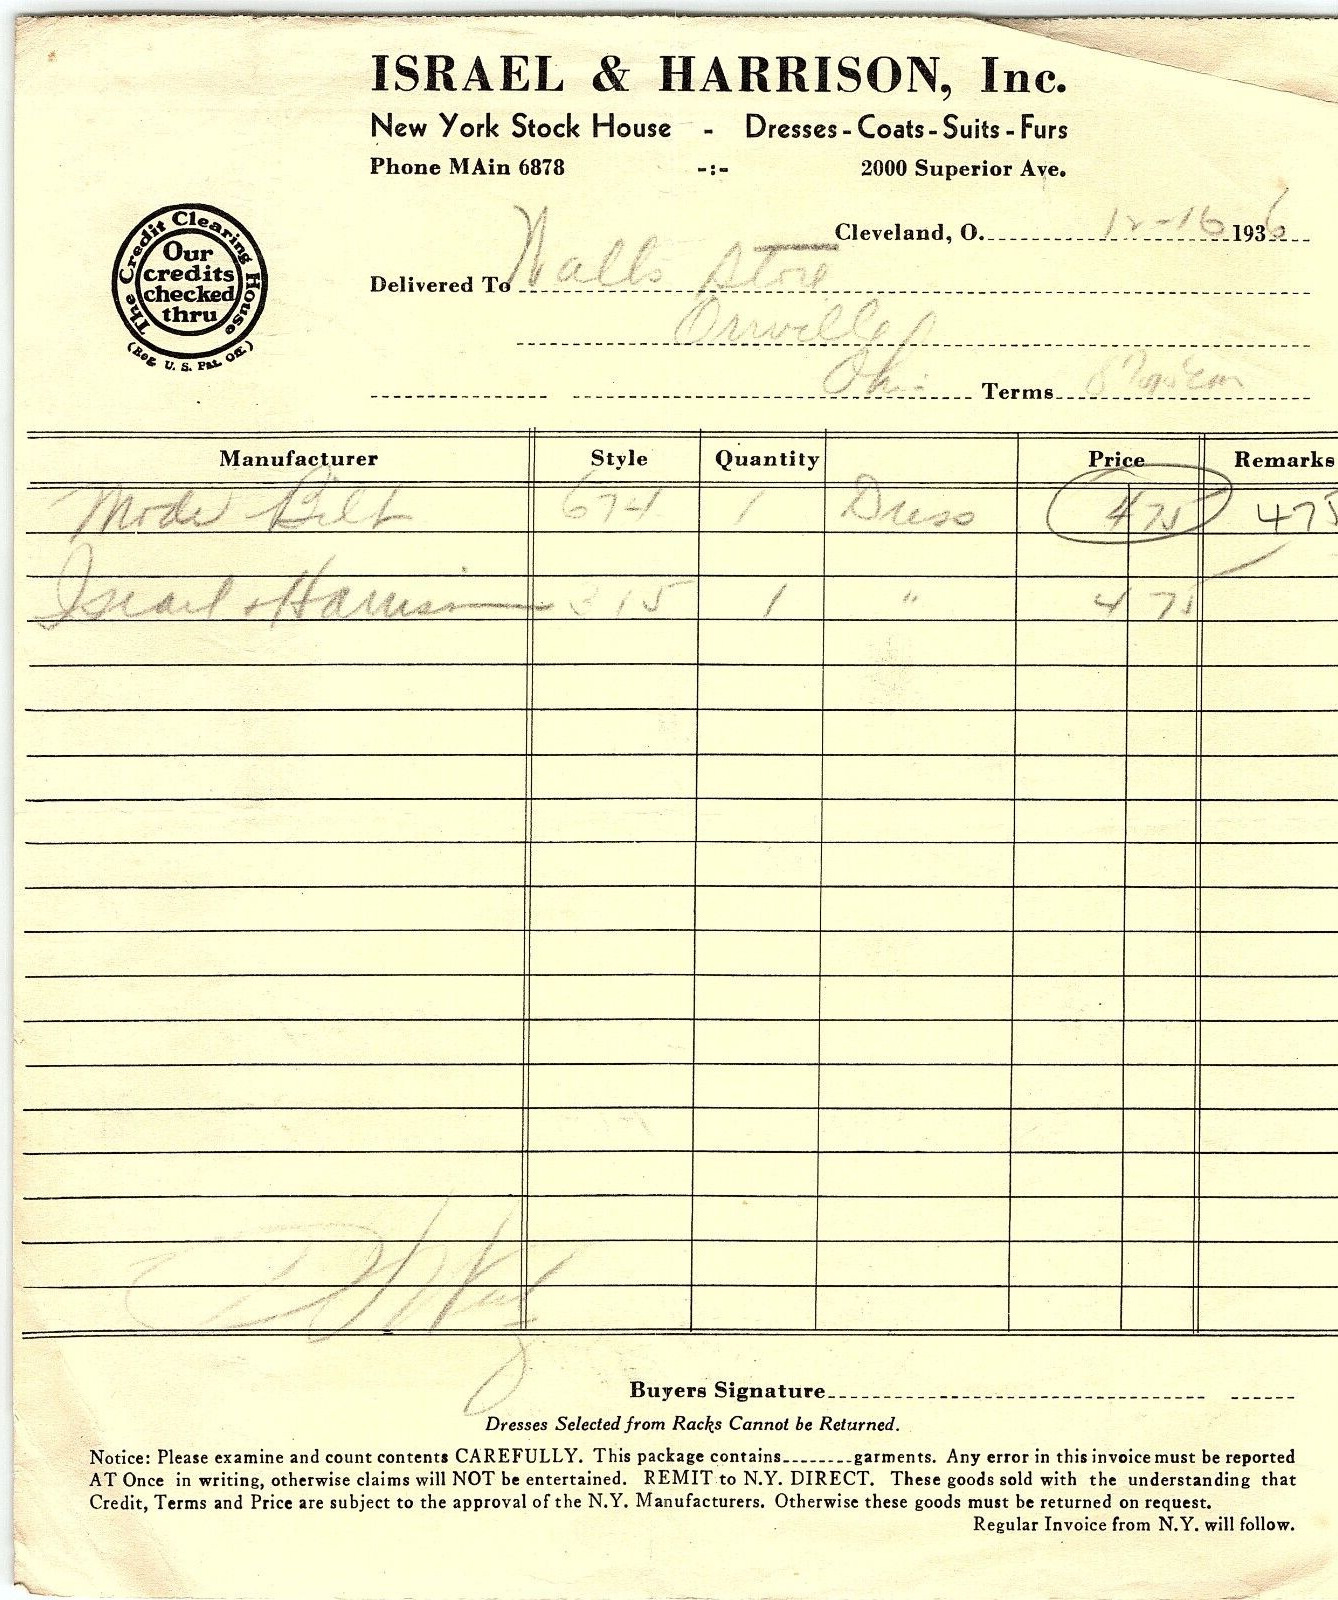 ISRAEL & HARRISON, Inc.
New York Stock House - Dresses-Coats-Suits-Furs
Phone MAin 6878 -:- 2000 Superior Ave.
Cleveland, O. 12-16 1936
The Credit Clearing House
Our
credits
checked
thru
(Reg. U. S. Pat. Off.)
Delivered To Walls Store
Orrville
Ohio Terms
Manufacturer Style Quantity Price Remarks
Mode Bilt 674 1 Dress 4 75 475
Israel & Harrison 315 1 " 4 75
Buyers Signature
Dresses Selected from Racks Cannot be Returned.
Notice: Please examine and count contents CAREFULLY. This package contains garments. Any error in this invoice must be reported
AT Once in writing, otherwise claims will NOT be entertained. REMIT to N.Y. DIRECT. These goods sold with the understanding that
Credit, Terms and Price are subject to the approval of the N.Y. Manufacturers. Otherwise these goods must be returned on request.
Regular Invoice from N.Y. will follow.